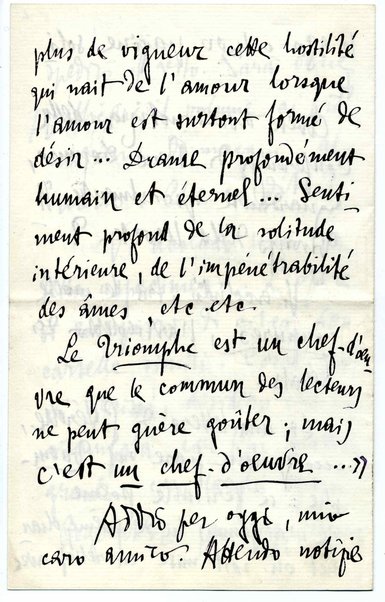 plus de vigueur cette hostilité
qui nait de l'amour lorsque
l'amour est surtout formé de
désir... Drame profondément
humain et éternel... Senti
ment profond de la solitude
intérieure, de l'impénétrabilité
des âmes, etc etc.
Le Triomphe est un chef-d'œu
vre que le commun des lecteurs
ne peut guère goûter; mais
c'est un chef-d'œuvre ...»
Addio per oggi, mio
caro amico. Attendo notizie